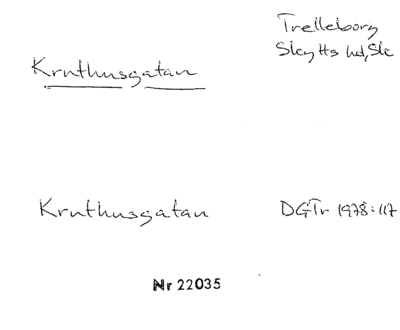 Trelleborg
Skytts hd, Sk
Kruthusgatan
Kruthusgatan DGTr 1978:117
Nr 22035